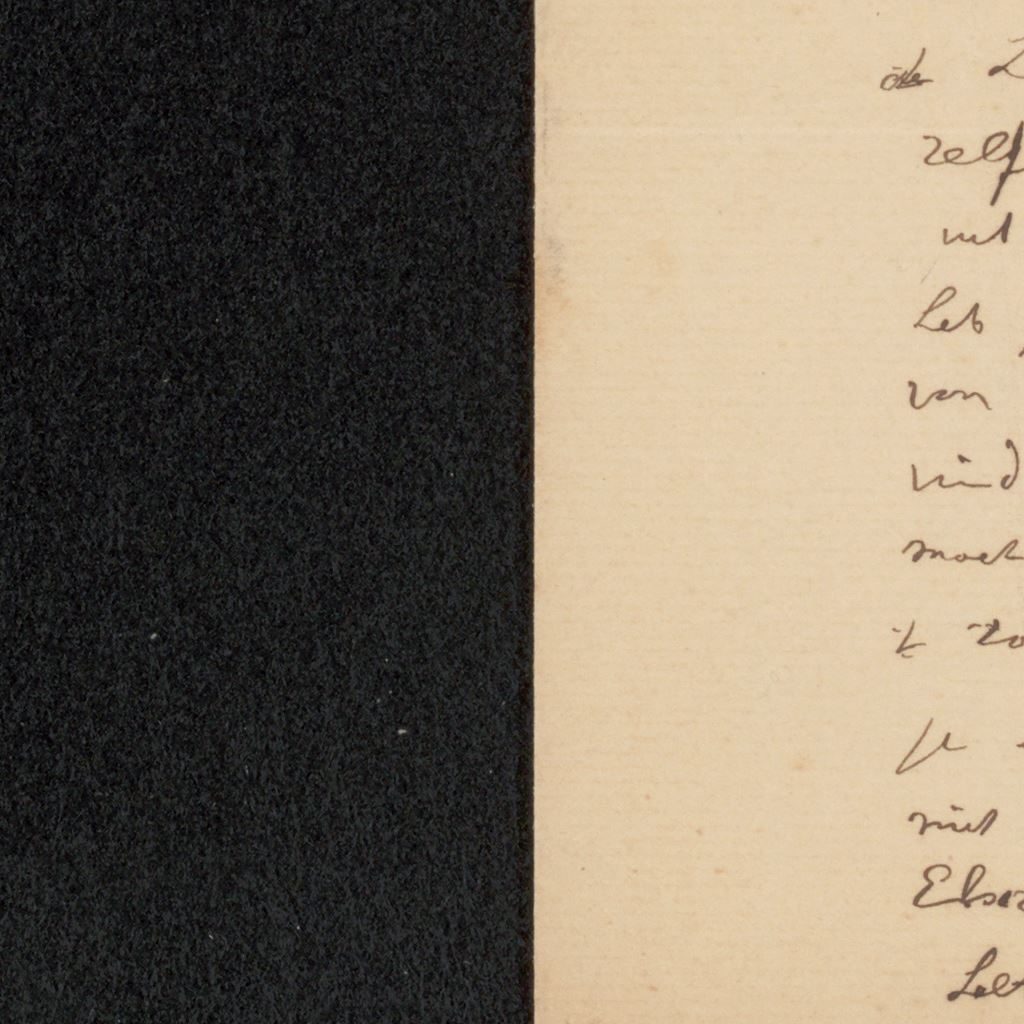 de
zelf
uit
Heb
van
vind
moet
't zo
je
niet
Elsa